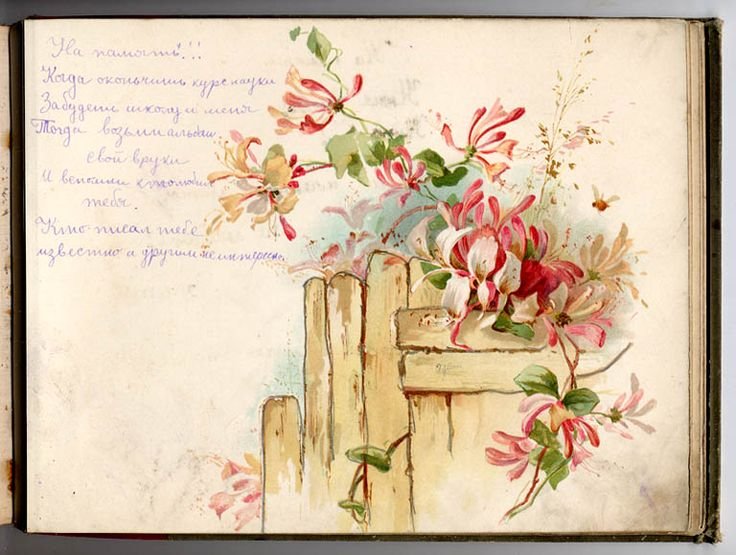 На память!!!
Когда окончишь курс науки
Забудешь школу и меня
Тогда возьми альбом
свой вруки
И вспомни ктолюбил
тебя.
Кто писал тебе
известно а другим не интересно.